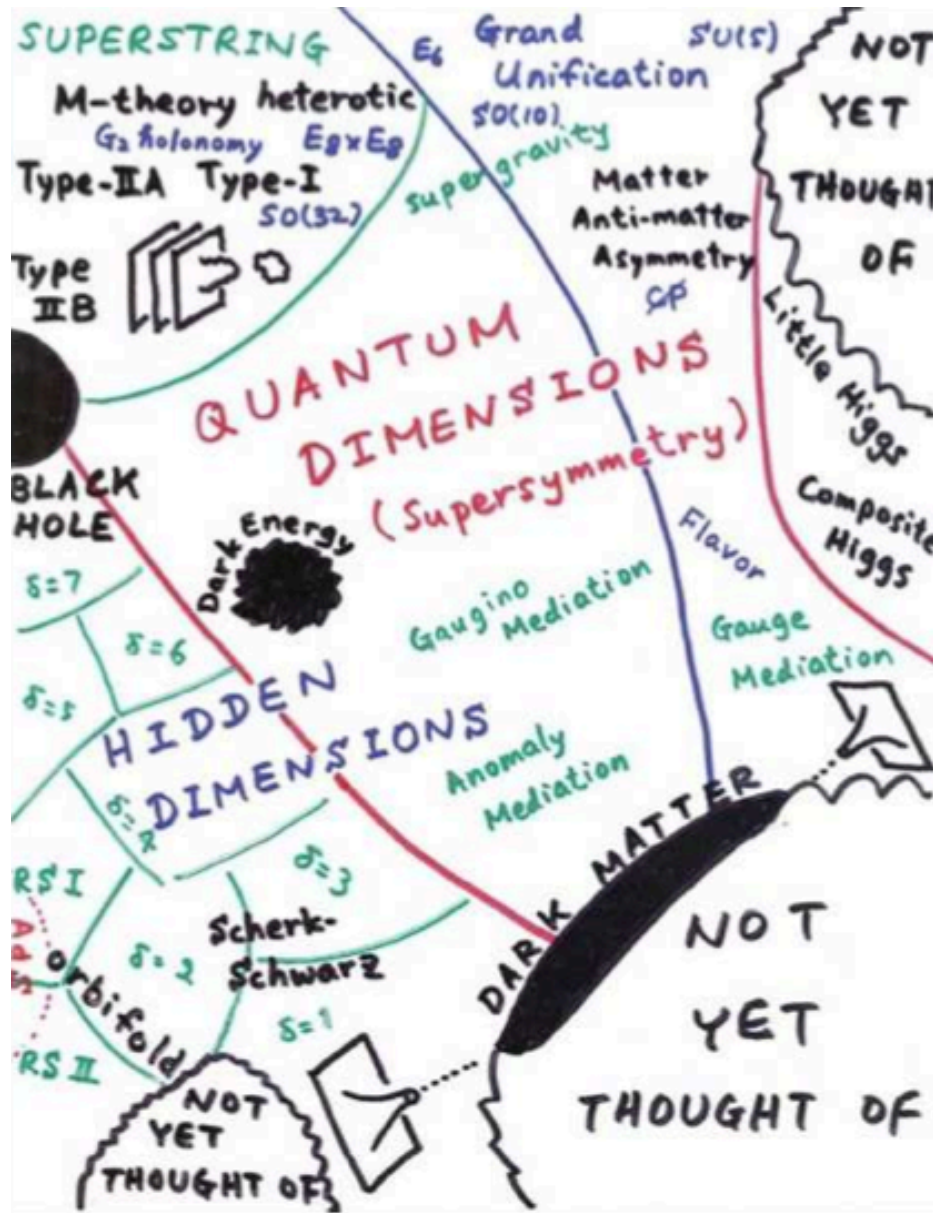 SUPERSTRING
M-theory heterotic
G₂ holonomy E₈xE₈
Type-IIA Type-I
SO(32)
Type
IIB
E₆ Grand
Unification
SU(5)
SO(10)
supergravity
Matter
Anti-matter
Asymmetry
CP
NOT
YET
THOUGHT
OF
Little Higgs
Composite
Higgs
QUANTUM
DIMENSIONS
(Supersymmetry)
BLACK
HOLE
Dark Energy
Flavor
Gaugino
Mediation
Gauge
Mediation
Anomaly
Mediation
δ=7
δ=6
δ=5
HIDDEN
DIMENSIONS
δ=4
δ=3
RS I
AdS
orbifold
δ=2
Scherk-
Schwarz
δ=1
RS II
DARK MATTER
NOT
YET
THOUGHT OF
NOT
YET
THOUGHT OF